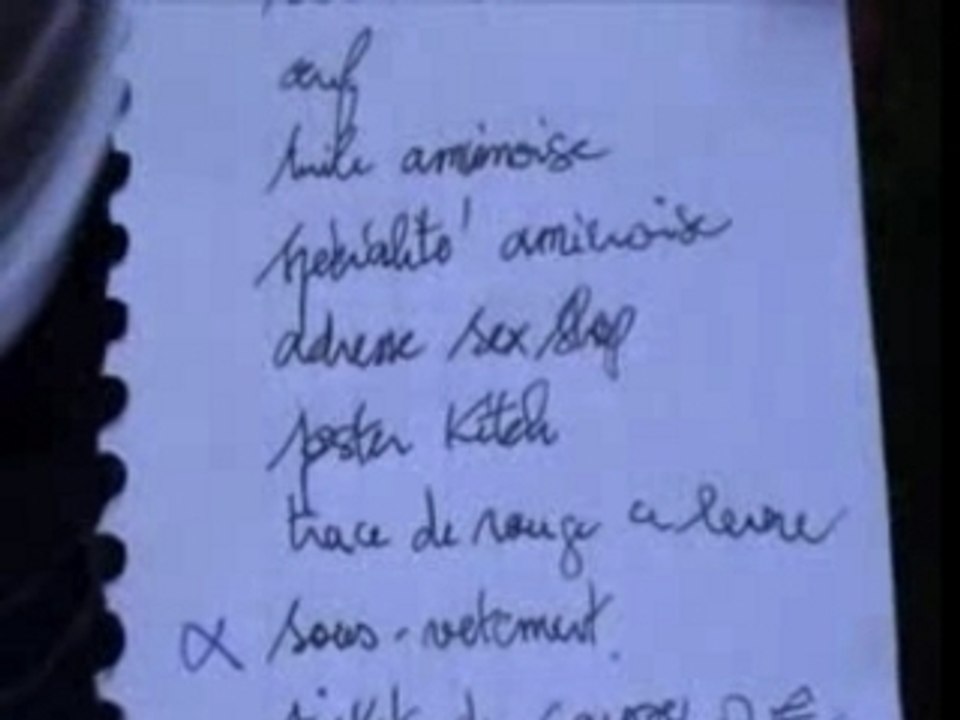 œuf
tuile amienoise
spécialité amienoise
adresse sex shop
poster Kitch
trace de rouge a levre
sous-vetement.
ticket de